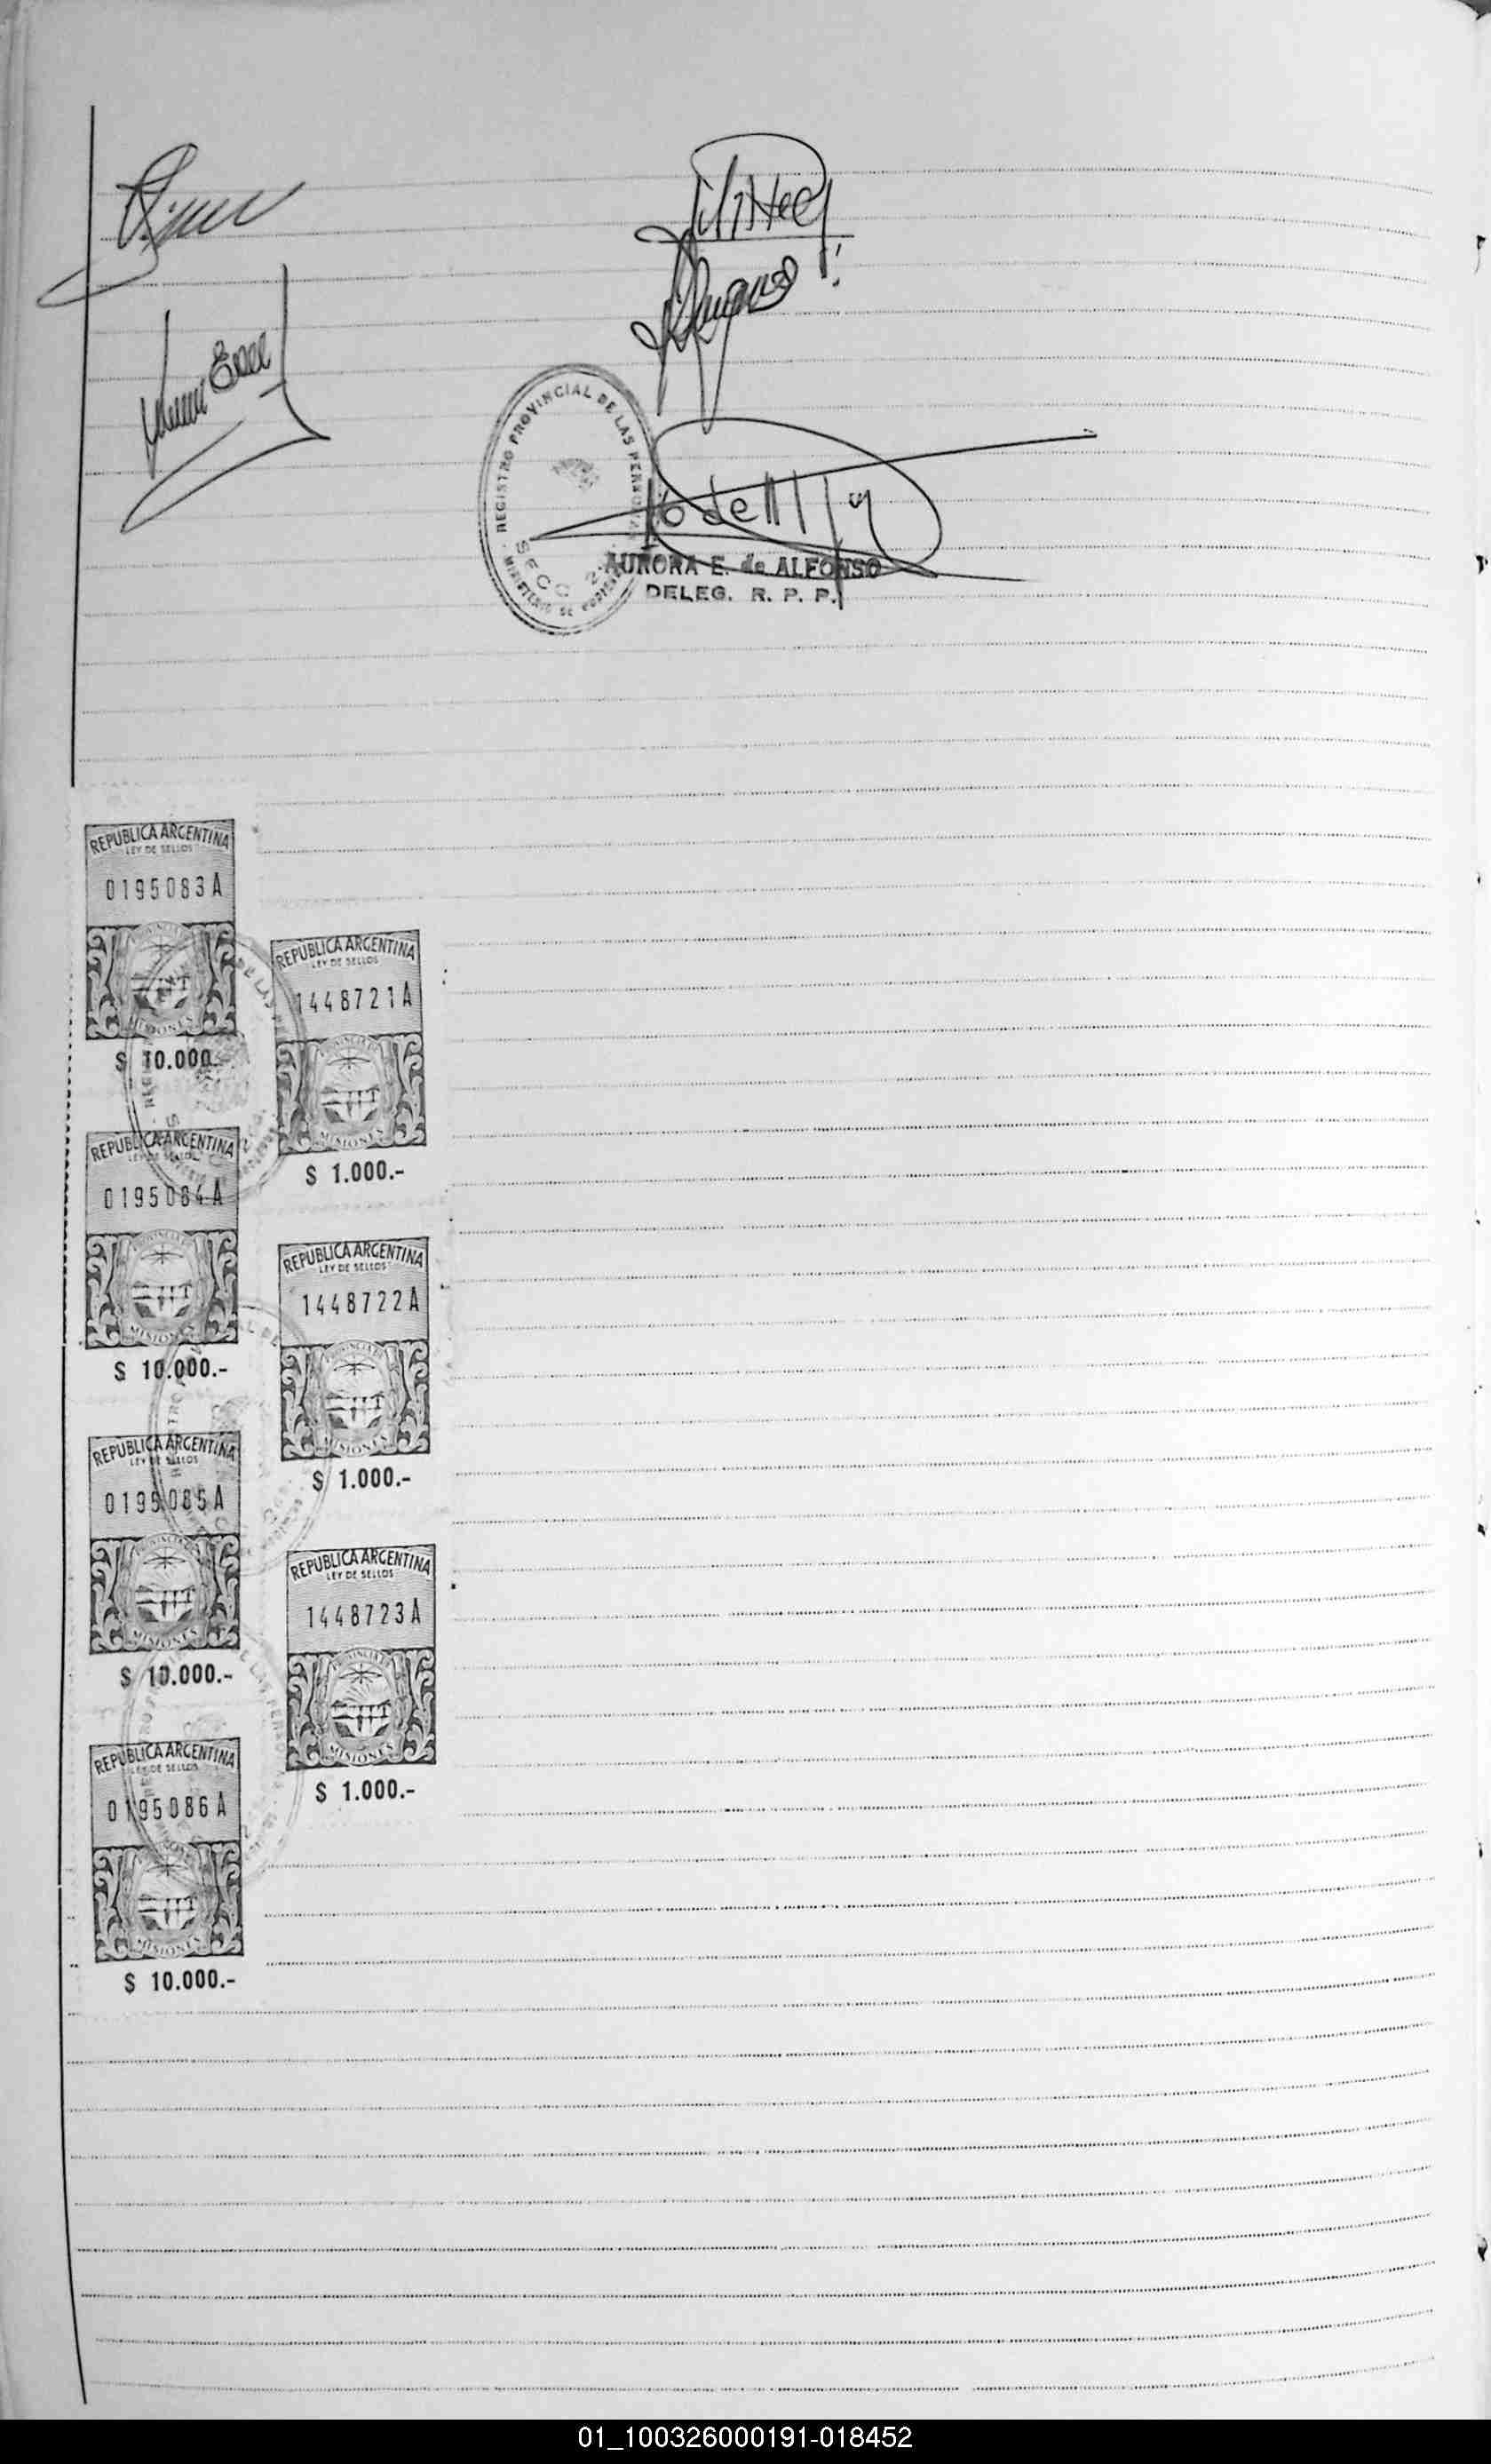 REGISTRO PROVINCIAL DE LAS PERSONAS
SECC 2
MINISTERIO DE GOBIERNO
AURORA E. de ALFONSO
DELEG. R. P. P.
REPUBLICA ARGENTINA
LEY DE SELLOS
0195083A
MISIONES
$ 10.000.-
REPUBLICA ARGENTINA
LEY DE SELLOS
1448721A
MISIONES
$ 1.000.-
REPUBLICA ARGENTINA
LEY DE SELLOS
0195084A
MISIONES
$ 10.000.-
REPUBLICA ARGENTINA
LEY DE SELLOS
1448722A
MISIONES
$ 1.000.-
REPUBLICA ARGENTINA
LEY DE SELLOS
0195085A
MISIONES
$ 10.000.-
REPUBLICA ARGENTINA
LEY DE SELLOS
1448723A
MISIONES
$ 1.000.-
REPUBLICA ARGENTINA
LEY DE SELLOS
0195086A
MISIONES
$ 10.000.-
01_100326000191-018452